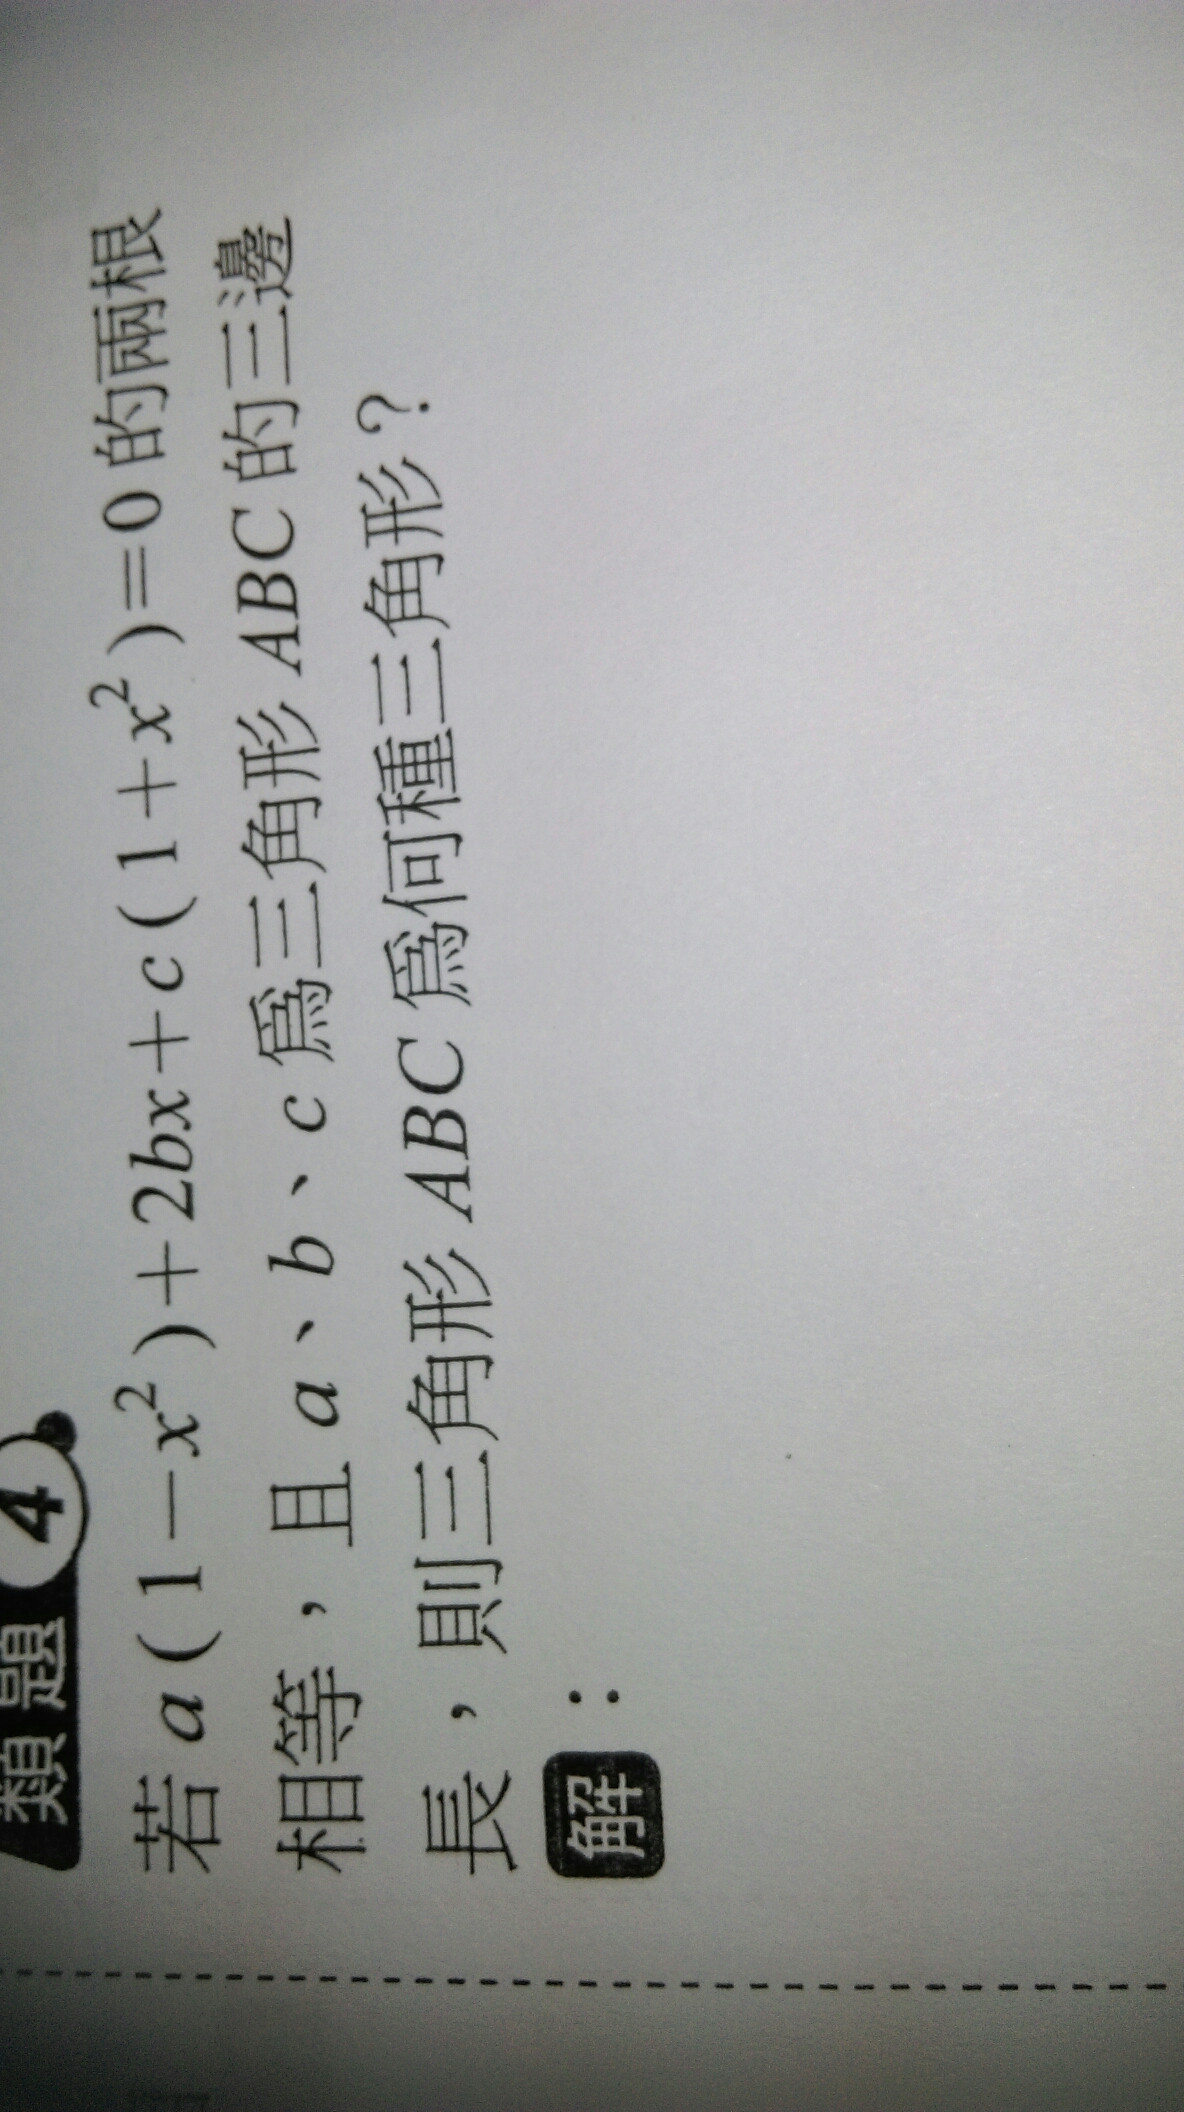 類題 4
若 a(1－x²)＋2bx＋c(1＋x²)＝0 的兩根
相等，且 a、b、c 爲三角形 ABC 的三邊
長，則三角形 ABC 爲何種三角形？
解：